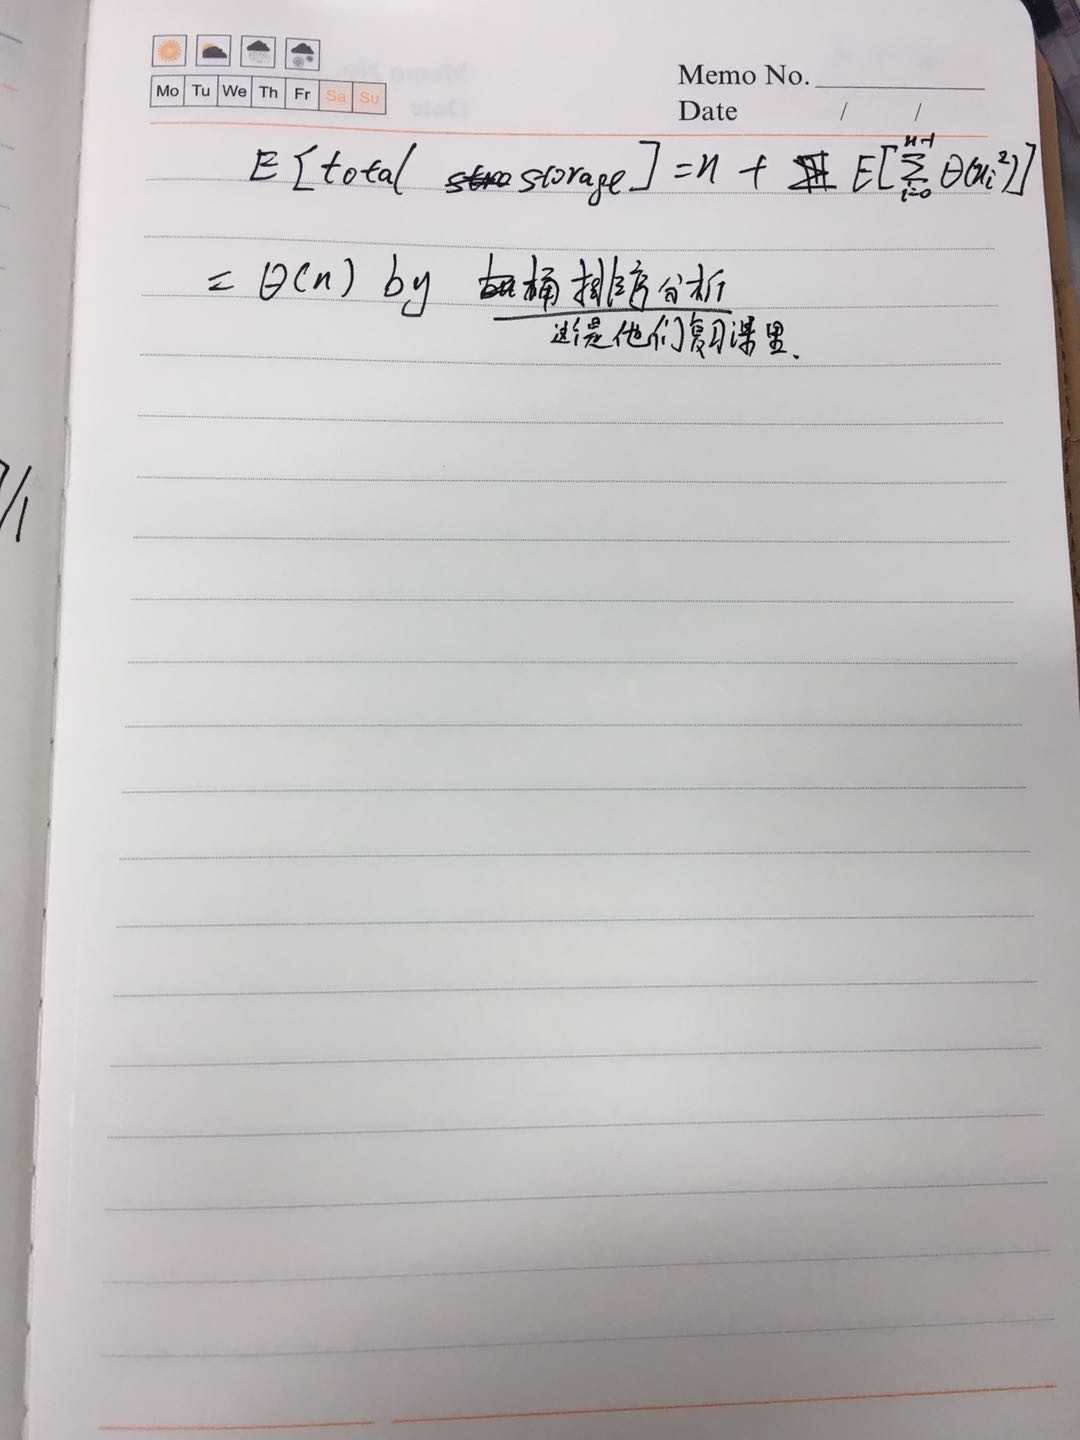 Mo Tu We Th Fr Sa Su
Memo No.
Date / /
E[total storage] = n + E[∑_{i=0}^{n-1} θ(n_i^2)]
= θ(n) by 桶排序分析
这是他们复习课里.